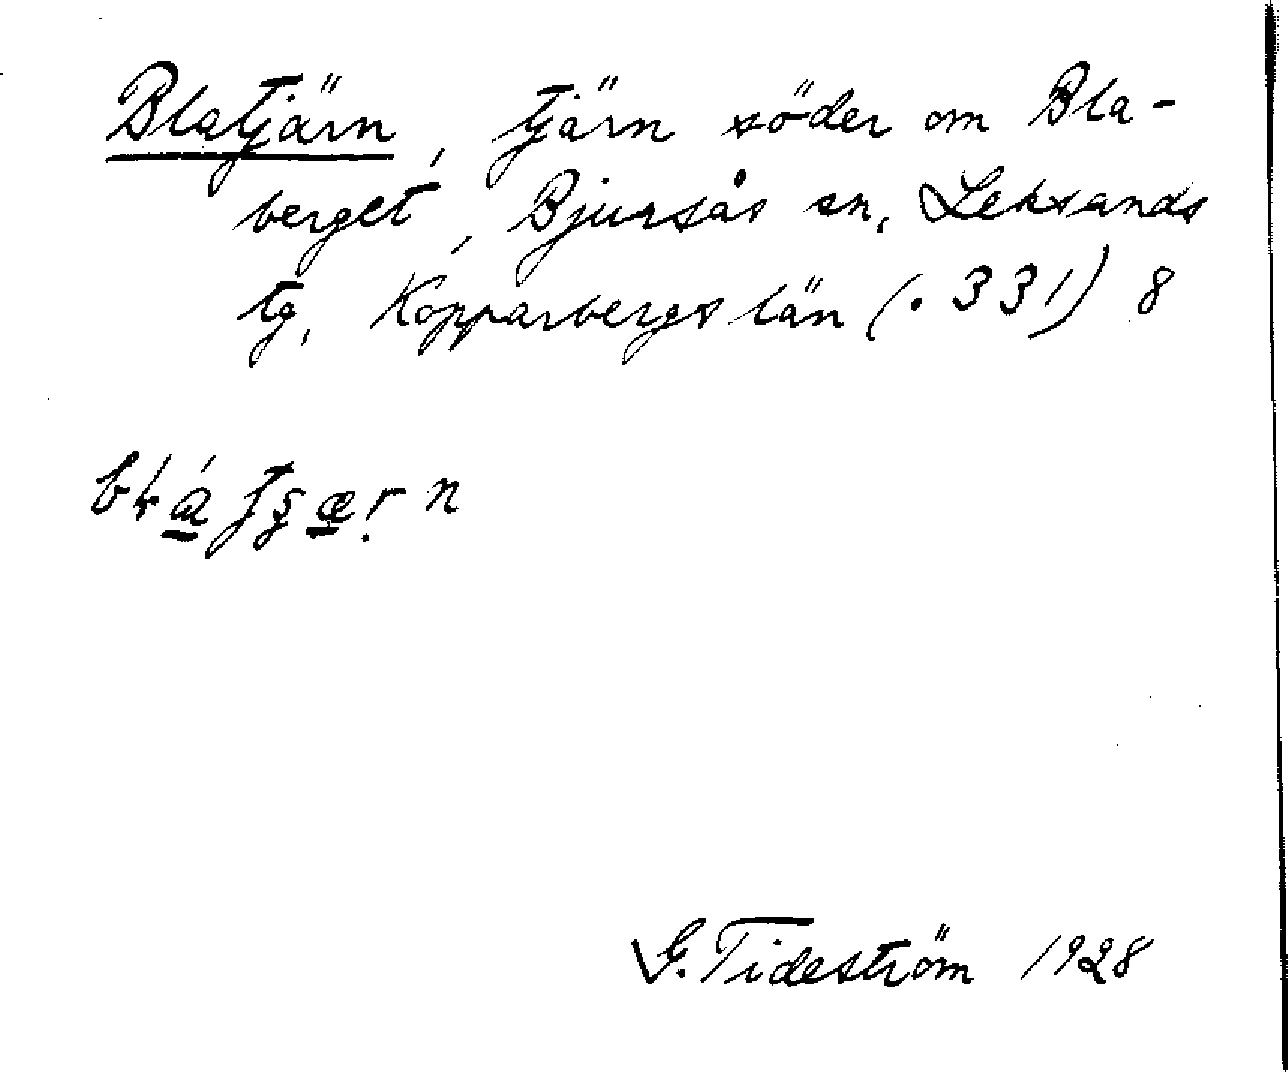 Blatjärn, tjärn söder om Bla-
berget, Bjursås sn, Leksands
tg, Kopparbergs län (. 331) 8
G. Tideström 1928